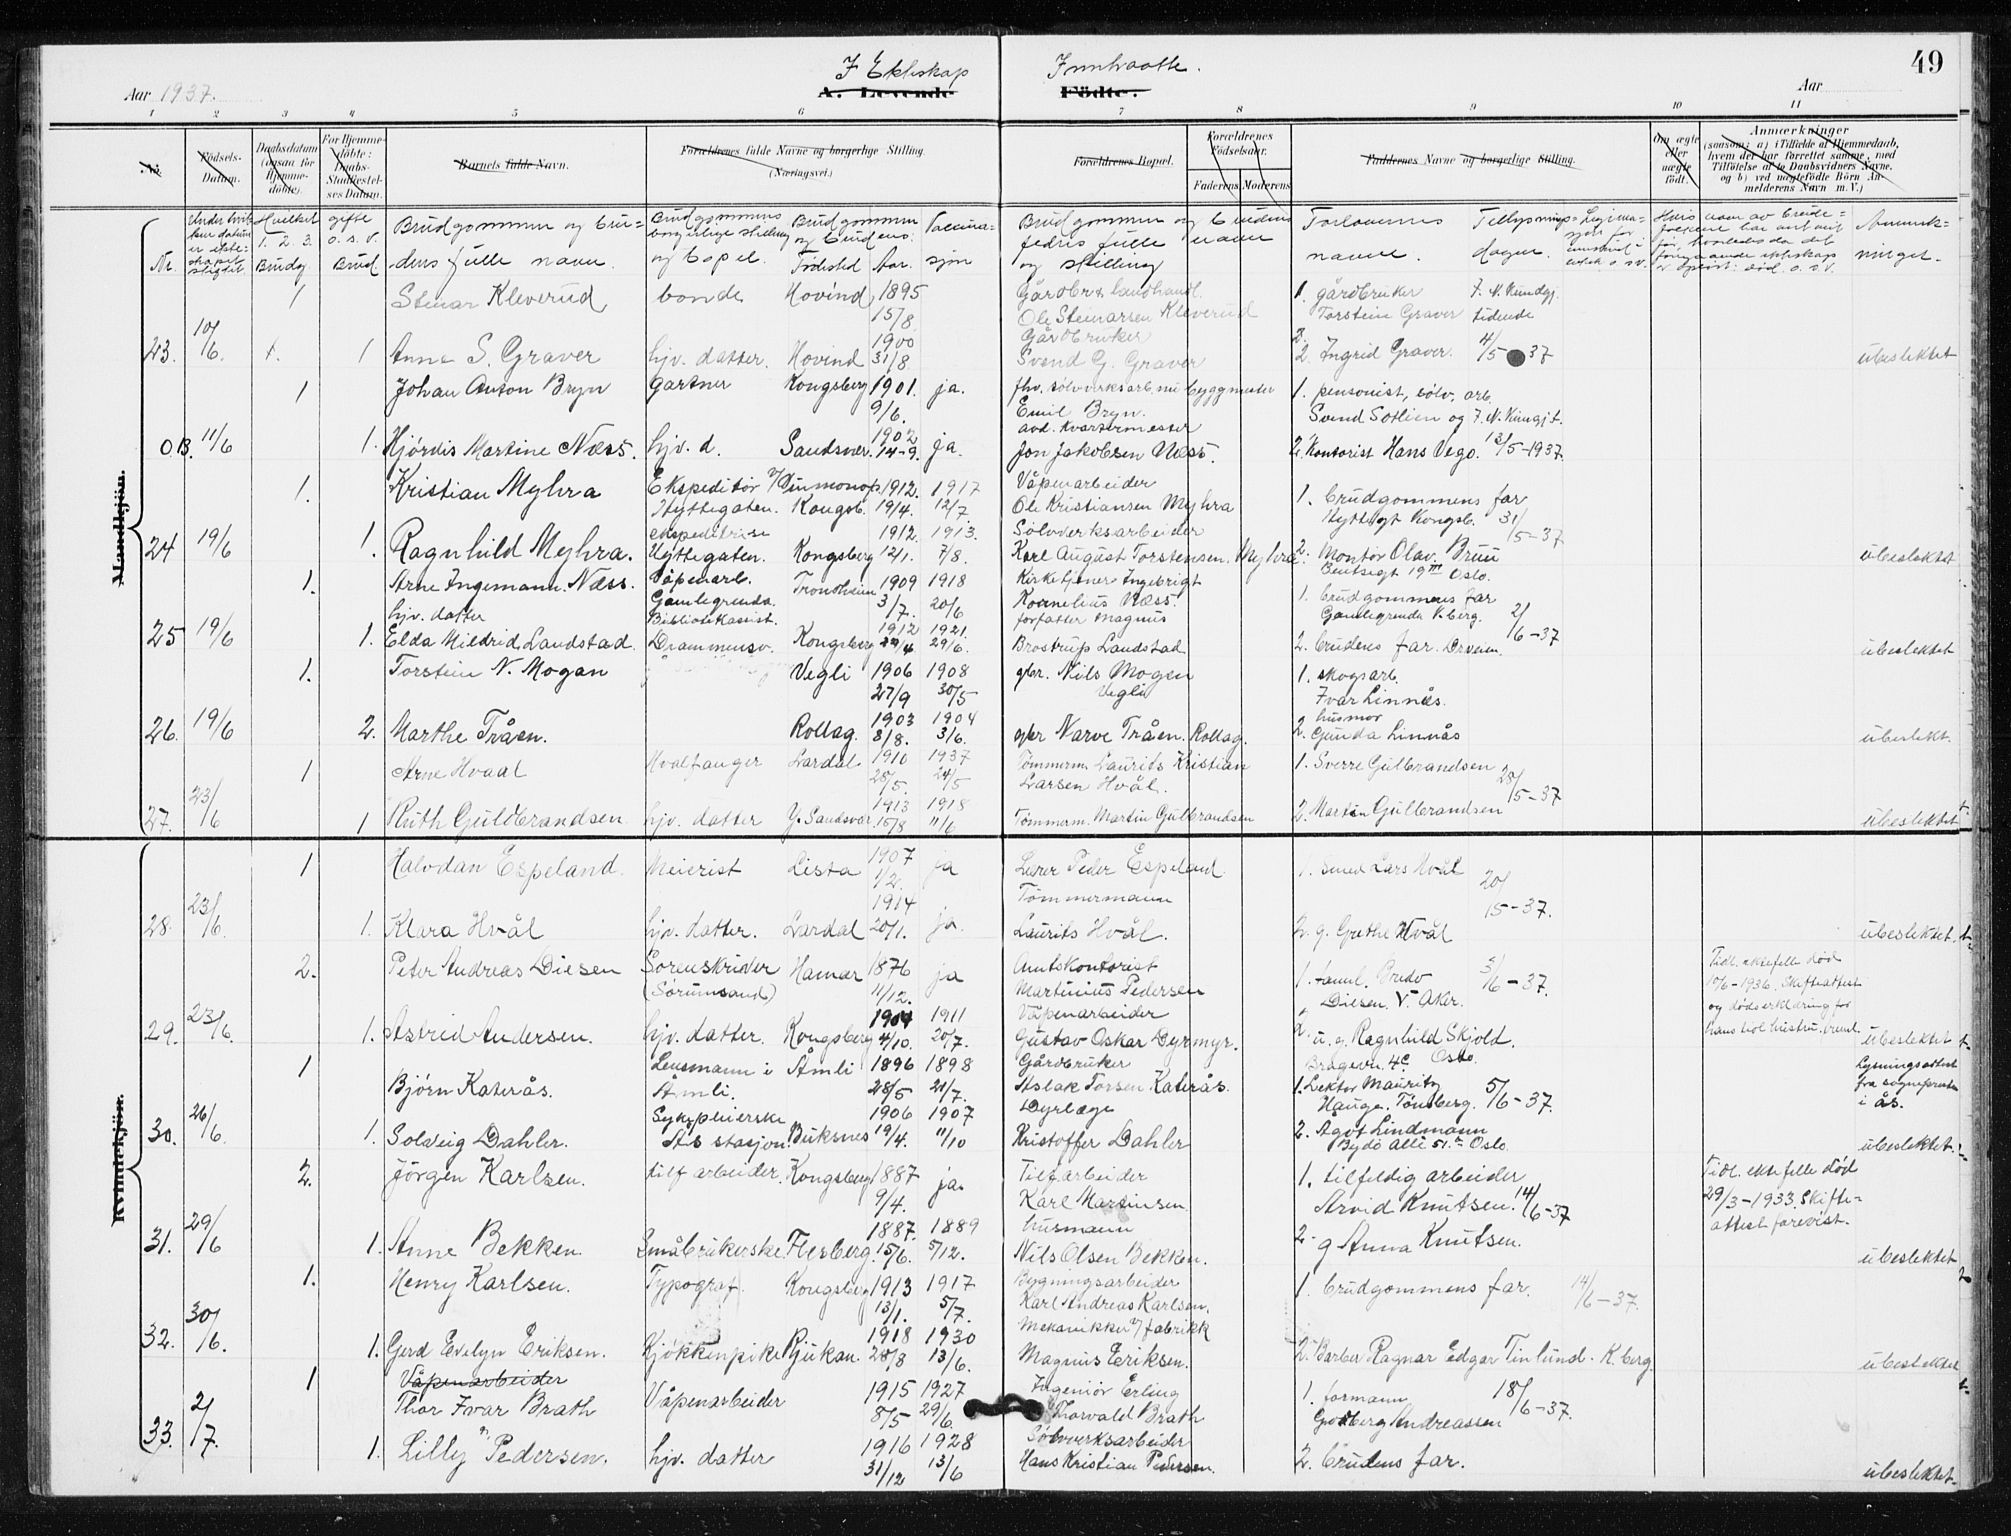 49
I Ekteskap Inntraatte.
Aar 1937. A. Levende Födte. Aar
1 2 3 4 5 6 7 8 9 10 11
No. Födsels-Datum. Daabsdatum (ogsaa for Hjemmedöbte). For Hjemmedöbte: Daabs-Stadfæstelses Datum. Barnets fulde Navn. Forældrenes fulde Navne og borgerlige Stilling. (Næringsvei.) Forældrenes Bopæl. Forældrenes Födselsaar. Faderens Moderens Faddernes Navne og borgerlige Stilling. Om ægte eller uægte födt. Anmærkninger (saasom: a) i Tilfælde af Hjemmedaab, hvem der har forrettet samme, med Tilföielse af to Daabsvidners Navne, og b) ved uægtefödte Börn Anmelderens Navn m. V.)
Nr. gifte o. s. v. Brudg. Brud Brudgommens og brudens fulle navn. Brudgommens borgerlige stilling og bopel. Brudgommens og brudens: Fødested Aar. Vaccinasjon Brudgommens og brudens fedris fulle navn og stilling Forlovernes navne. Tellysnings-dagen. Anmerkninger.
Mandkjön.
1 Steinar Kleverud bonde Hovind 1895 Gårdbr & landhandl. 1. gårdbruker
15/8 Ole Steinarsen Kleverud Torstein Graver tidende
10/6 1900 Gårdbruker 2.
23. 1 Anne S. Graver hjv. datter. Hovind 31/8 Svend G. Graver 2. Ingrid Graver. 4/5 37 ubeslektet
1 Johan Anton Bryn gartner Kongsberg 1901. ja. fhv. sölvverksarb. nu byggmester 1. pensonist, sölv. arb.
9/6. Emil Bryn. Svend Sotlien og
1902 avd. kvartermester
O.B. 11/6 1. Hjördis Martine Næss. hjv. d. Sandsvær. 14-9. ja. Jon Jakobsen Næss. 2. Kontorist Hans Vego. 13/5-1937.
1. Kristian Myhra Ekspeditör v/Vinmonop. 1912. 1917 Våpenarbeider 1. brudgommens far
Hyttegaten. Kongsb. 19/4. 12/7 Ole Kristiansen Myhra Hyttegt Kongsb. 31/5-37
ekspeditrise 1912. 1913. Sölvverksarbeider
24 19/6 1. Ragnhild Myhra. Hyttegaten. Kongsberg 12/1. 7/8. Karl August Torstensen Myhra 2. Montör Olav Bruu ubeslektet
Bentsegt 19III Oslo.
1. Arne Ingemann Næss. Våpenarb. Trondheim 1909 1918 Kirketjener Ingebrigt 1. brudgommens far
Gamlegrenda. 3/7. 20/6 Kornelius Næss. Gamlegrenda K.berg. 2/6-37
hjv. datter Bibliotekassist. 1912 1921. forfatter Magnus
25 19/6 1. Elda Mildrid Landstad. Drammensv. Kongsberg 29/4 29/6. Brostrup Landstad 2. brudens far. Drveien. ubeslektet
1. Torstein N. Mogan Vegli 1906 1908 gbr. Nils Mogen 1. skogsarb.
27/9 30/5 Vegli Ivar Linnås.
1903 1904 husmor
26. 19/6 2. Marthe Tråen. Rollag. 3/8. 3/6. gbr Narve Tråen. Rollag. 2. Gunda Linnås ubeslekt.
1 Arne Hvaal Hvalfanger Lardal 1910 1937 Tömmerm. Laurits Kristian 1. Sverre Gulbrandsen
28/5. 24/5 Larsen Hvål. 28/5-37
1913 1918
27. 23/6 1 Ruth Gulbrandsen hjv. datter Y. Sandsvær. 15/8 11/6 Tömmerm. Martin Gulbrandsen 2. Martin Gulbrandsen ubeslektet
Kvindekjön.
1 Halvdan Espeland. Meierist Lista 1907 ja Lærer Peder Espeland. 1. Smed Lars Hvål
1/2. Tömmermann 20/5-37.
1914
28. 23/6. 1. Klara Hvål hjv. datter. Lardal 20/1. ja. Laurits Hvål. 2. g. Grethe Hvål ubeslektet.
2. Peter Andreas Diesen Sorenskriver Hamar 1876 ja Amtskontorist 1. faml. Bredo 3/6-37. Tidl. ektefelle död
(Sörumsand) 11/12. Martinius Pedersen Diesen. V. Aker. 10/6-1936. Skifteattest
1904 1911 Våpenarbeider og dödserkldring for
29. 23/6 1. Astrid Andersen. hjv. datter. Kongsberg 4/10. 20/7. Gustav Oskar Dyrmyr. 2. u. g. Ragnhild Skjold. hans tidl hustru. ubeslektet
1 Lensmann i Åmli 1896 1898 Gårdbruker Bragesvn. 4c Oslo. Lysningsattest
Björn Katerås. Åmli. 28/5 21/7. Aslak Torsen Katerås. 1. Lektor Mauritz 5/6-37. fra sogneprest
Sykepleierske 1906 1907 Dyrlege Hauge. Tönsberg. i Ås.
30. 26/6. 1. Solveig Dahler. Ås stasjon. Buksnes 19/4. 11/10 Kristoffer Dahler 2. Agot Lindmann ubeslektet.
Bygdö Allé 51. Oslo.
2. Jörgen Karlsen. tilf arbeider. Kongsberg 1887 ja. Tilf arbeider 1. tilfeldig arbeider Tidl. ektefelle död
9/4. Karl Martinsen. Arvid Knutsen. 14/6-37 29/3-1933. Skifte-
1887. 1889 husmann attest forevist.
31. 29/6 1. Anne Bekken. Småbrukerske. Flesberg. 15/6. 5/12. Nils Olsen Bekken. 2. g Anna Knutsen. ubeslektet
1. Henry Karlsen. Typograf. Kongsberg 1913 1917 Bygningsarbeider 1. brudgommens far. 14/6-37.
13/1. 5/7. Karl Andreas Karlsen.
30/6. 1918 1930 Mekanikker v/ fabrikk
32. 1. Gerd Evelyn Eriksen. Kjökkenpike Rjukan. 28/8 13/6. Magnus Eriksen. 2. Barber Ragnar Edgar Tinlund. K.berg ubeslektet
1 Våpenarbeider
Thor Ivar Brath Våpenarbeider 1915 1927 Ingeniör Erling 1. formann 18/6-37.
2/7. 8/5 29/6 Thorvald Brath Godberg Andreassen
33. 1. Lilly Pedersen. hjv. datter 1916 1928 Sölvverksarbeider
31/12 13/6 Hans Kristian Pedersen. 2. brudens far. ubeslektet.